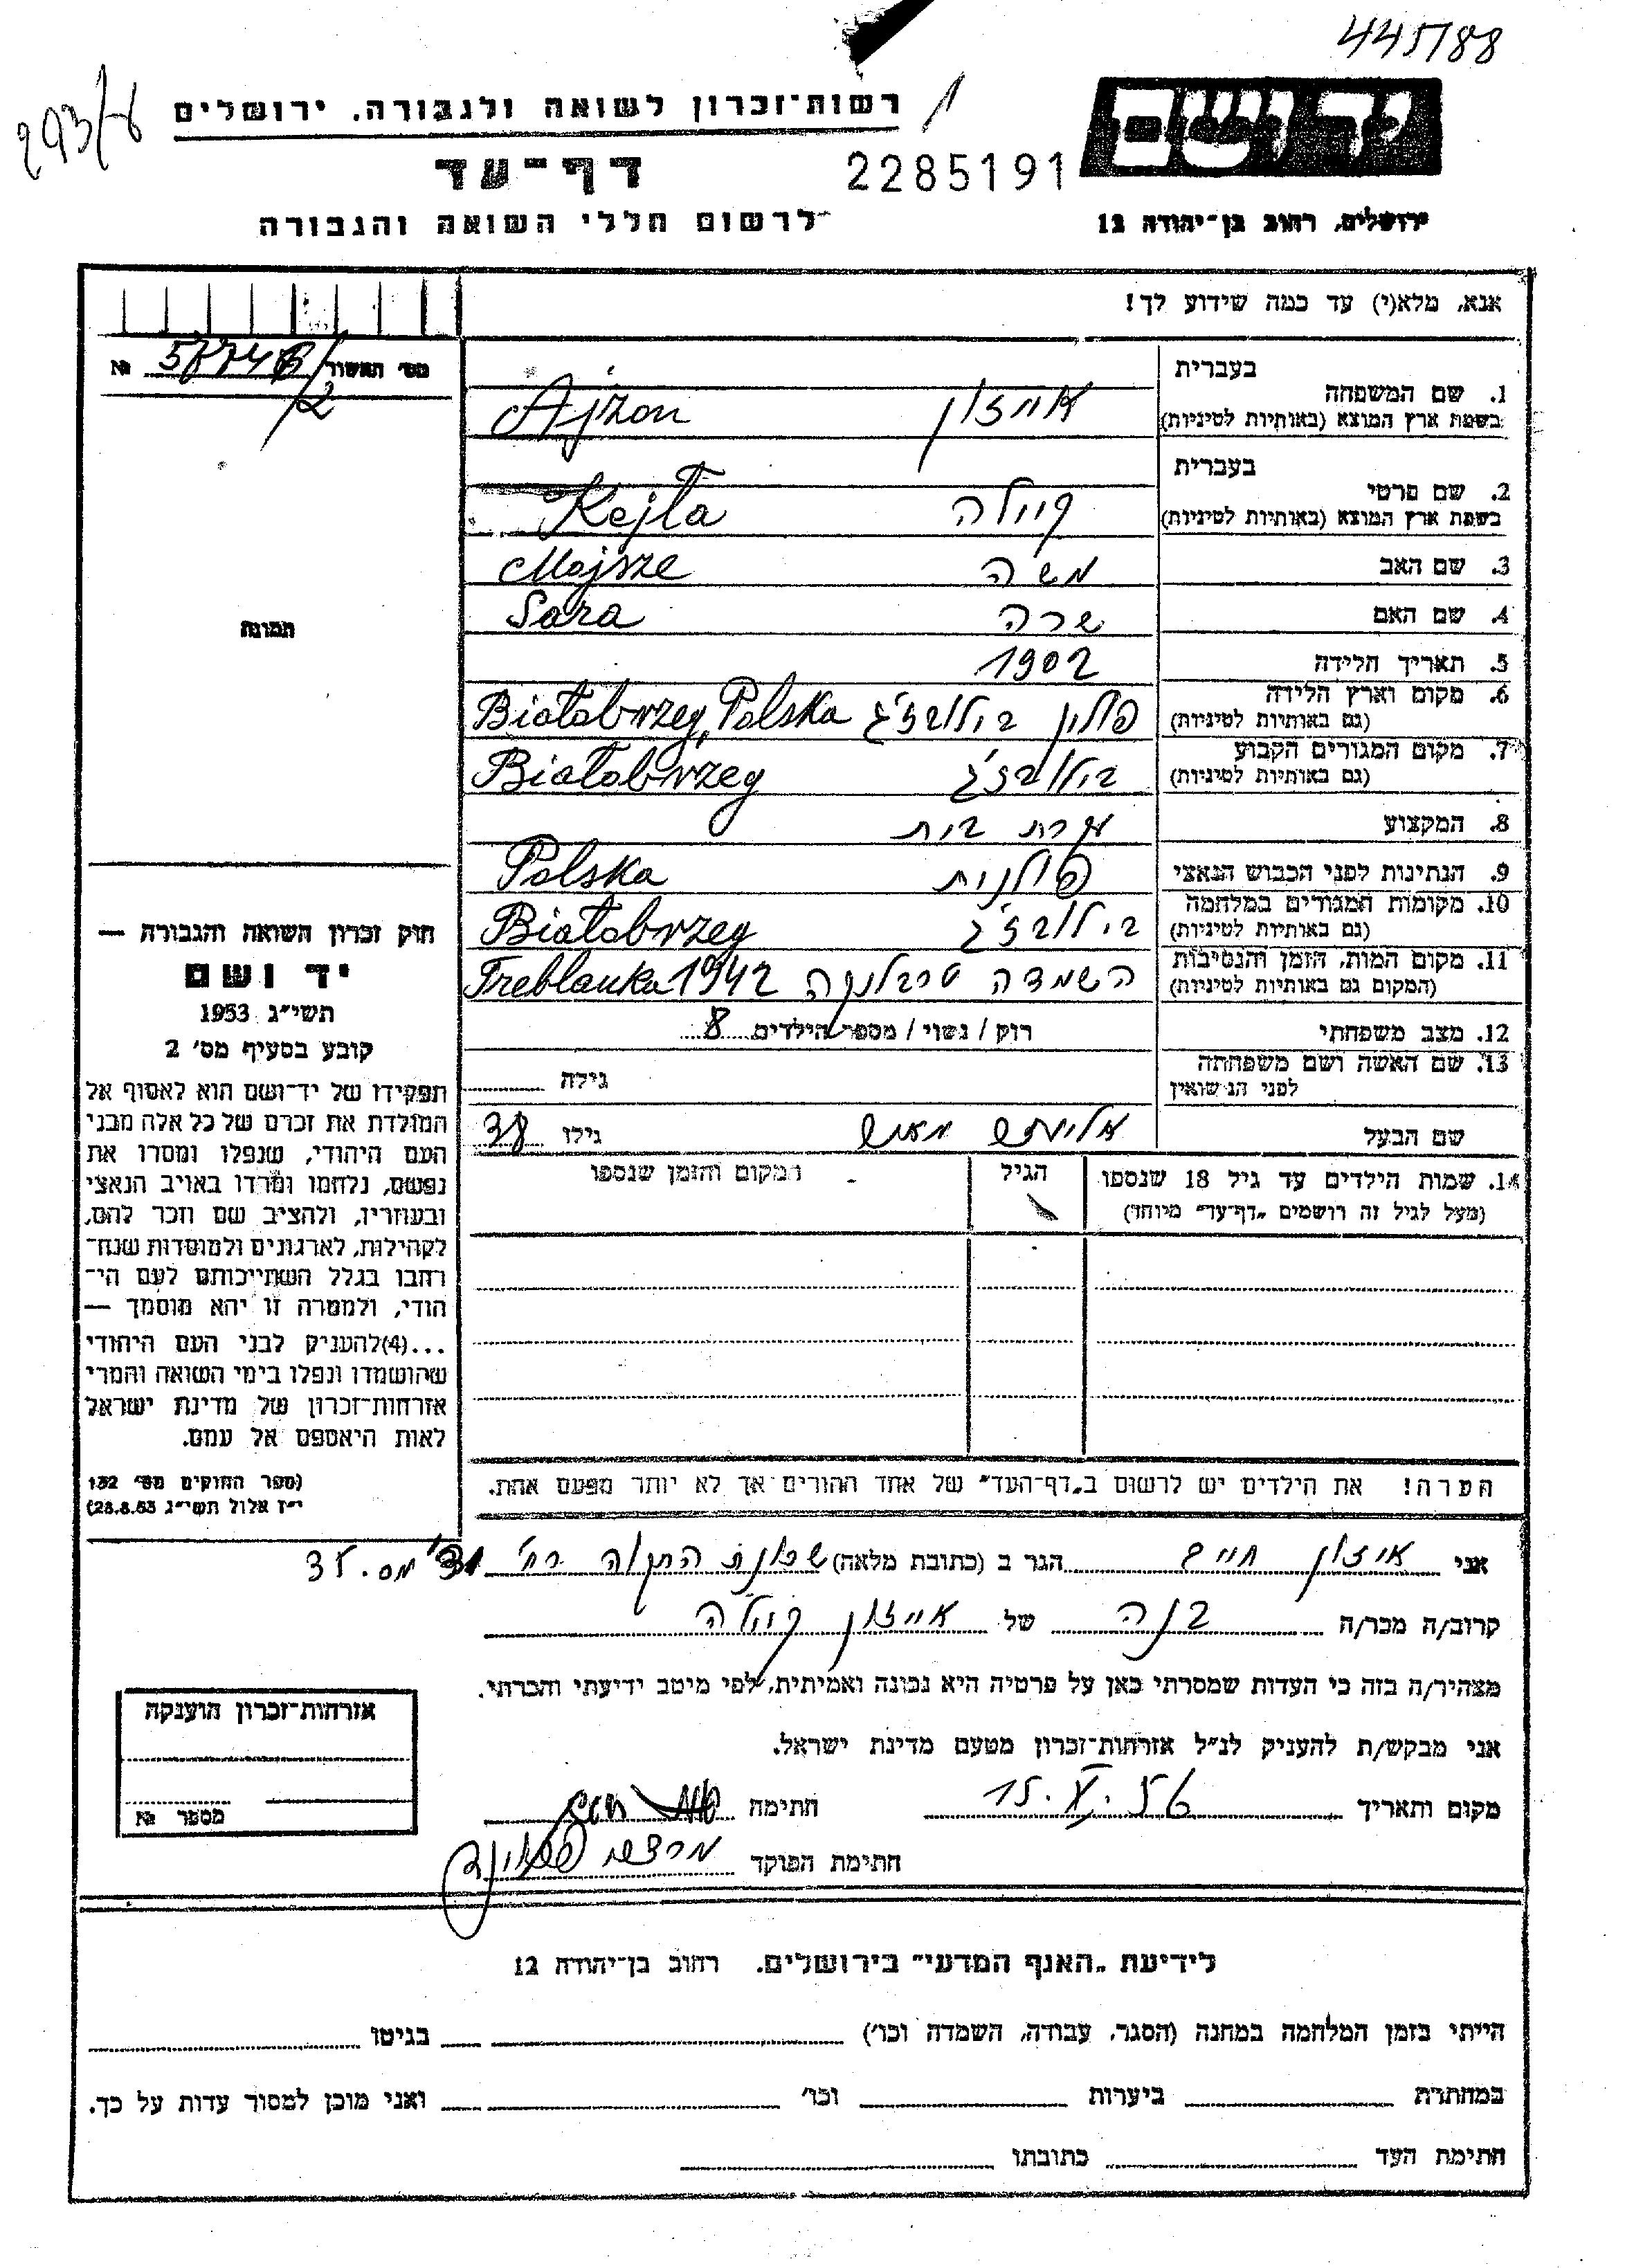 445788
293/
רשות־זכרון לשואה ולגבורה. ירושלים
1
יד ושם
דף־עד
2285191
לרשום חללי השואה והגבורה
ירושלים, רחוב בן־יהודה 12
אנא, מלא(י) עד כמה שידוע לך!
מס' תאשור № /2
בעברית
1. שם המשפחה אייזון Ajzon
בשפת ארץ המוצא (באותיות לטיניות)
בעברית
2. שם פרטי קיילה Kejla
בשפת ארץ המוצא (באותיות לטיניות)
3. שם האב משה Mojsze
4. שם האם שרה Sara
5. תאריך הלידה 1902
6. מקום וארץ הלידה פולין Białobrzeg, Polska
(גם באותיות לטיניות)
7. מקום המגורים הקבוע Białobrzeg
(גם באותיות לטיניות)
8. המקצוע עקרת בית
9. הנתינות לפני הכבוש הנאצי פולנית Polska
10. מקומות המגורים במלחמה Białobrzeg
(גם באותיות לטיניות)
11. מקום המות, הזמן והנסיבות השמדה טרבלינקה Treblanka 1942
(המקום גם באותיות לטיניות)
12. מצב משפחתי רוק / נשוי / מספר הילדים 8
13. שם האשה ושם משפחתה גילה
לפני הנשואין
שם הבעל גילו 38
14. שמות הילדים עד גיל 18 שנספו הגיל המקום והזמן שנספו
(מעל לגיל זה רושמים „דף־עד” מיוחד)
הערה! את הילדים יש לרשום ב„דף־העד” של אחד ההורים אך לא יותר מפעם אחת.
תמונה
חוק זכרון השואה והגבורה —
יד ושם
תשי"ג 1953
קובע בסעיף מס' 2
תפקידו של יד־ושם הוא לאסוף אל
המולדת את זכרם של כל אלה מבני
העם היהודי, שנפלו ומסרו את
נפשם, נלחמו ומרדו באויב הנאצי
ובעוזריו, ולהציב שם וזכר להם,
לקהילות, לארגונים ולמוסדות שנח־
רחבו בגלל השתייכותם לעם הי־
הודי, ולמטרה זו יהא מוסמך —
...(4)להעניק לבני העם היהודי
שהושמדו ונפלו בימי השואה והמרי
אזרחות־זכרון של מדינת ישראל
לאות היאספם אל עמם.
(ספר החוקים מס' 132
י"ז אלול תשי"ג 28.8.53)
אני איזון חיים הגר ב (כתובת מלאה) שכונת התקוה רח' מס. 35
קרוב/ה מכר/ה בנה של אייזון קיילה
מצהיר/ה בזה כי העדות שמסרתי כאן על פרטיה היא נכונה ואמיתית, לפי מיטב ידיעתי והכרתי.
אני מבקש/ת להעניק לנ"ל אזרחות־זכרון מטעם מדינת ישראל.
מקום ותאריך 15.X.56 חתימה
חתימת הפוקד
אזרחות־זכרון הוענקה
מספר №
לידיעת „האגף המדעי” בירושלים. רחוב בן־יהודה 12
הייתי בזמן המלחמה במחנה (הסגר, עבודה, השמדה וכו') בגיטו
במחתרת ביערות וכו' ואני מוכן למסור עדות על כך.
חתימת העד כתובתו